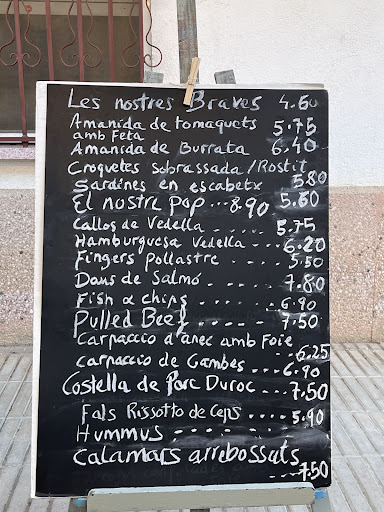 Les nostres Braves 4.60
Amanida de tomaquets 5.75
amb Feta
Amanida de Burrata 6.40
Croquetes sobrassada/Rostit
5.80
Sardines en escabetx 5.50
El nostre pop...8.90
Callos de Vedella...... 5.75
Hamburguesa Vedella.... 6.20
Fingers Pollastre.... 5.50
Daus de Salmó.... 7.80
Fish & chips..... 6.90
Pulled Beef.... 7.50
Carpaccio d'anec amb Foie
..6.25
Carpaccio de Gambes... 6.90
Costella de Porc Duroc... 7.50
Fals Rissotto de Ceps.... 5.90
Hummus - - - - - -
Calamars arrebossats
....7.50